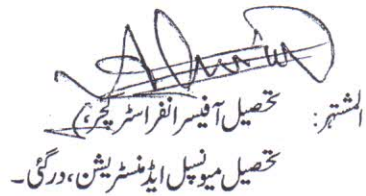 المشتہر: تحصیل آفیسر انفراسٹرکچر،
تحصیل میونسپل ایڈمنسٹریشن، درگئی۔